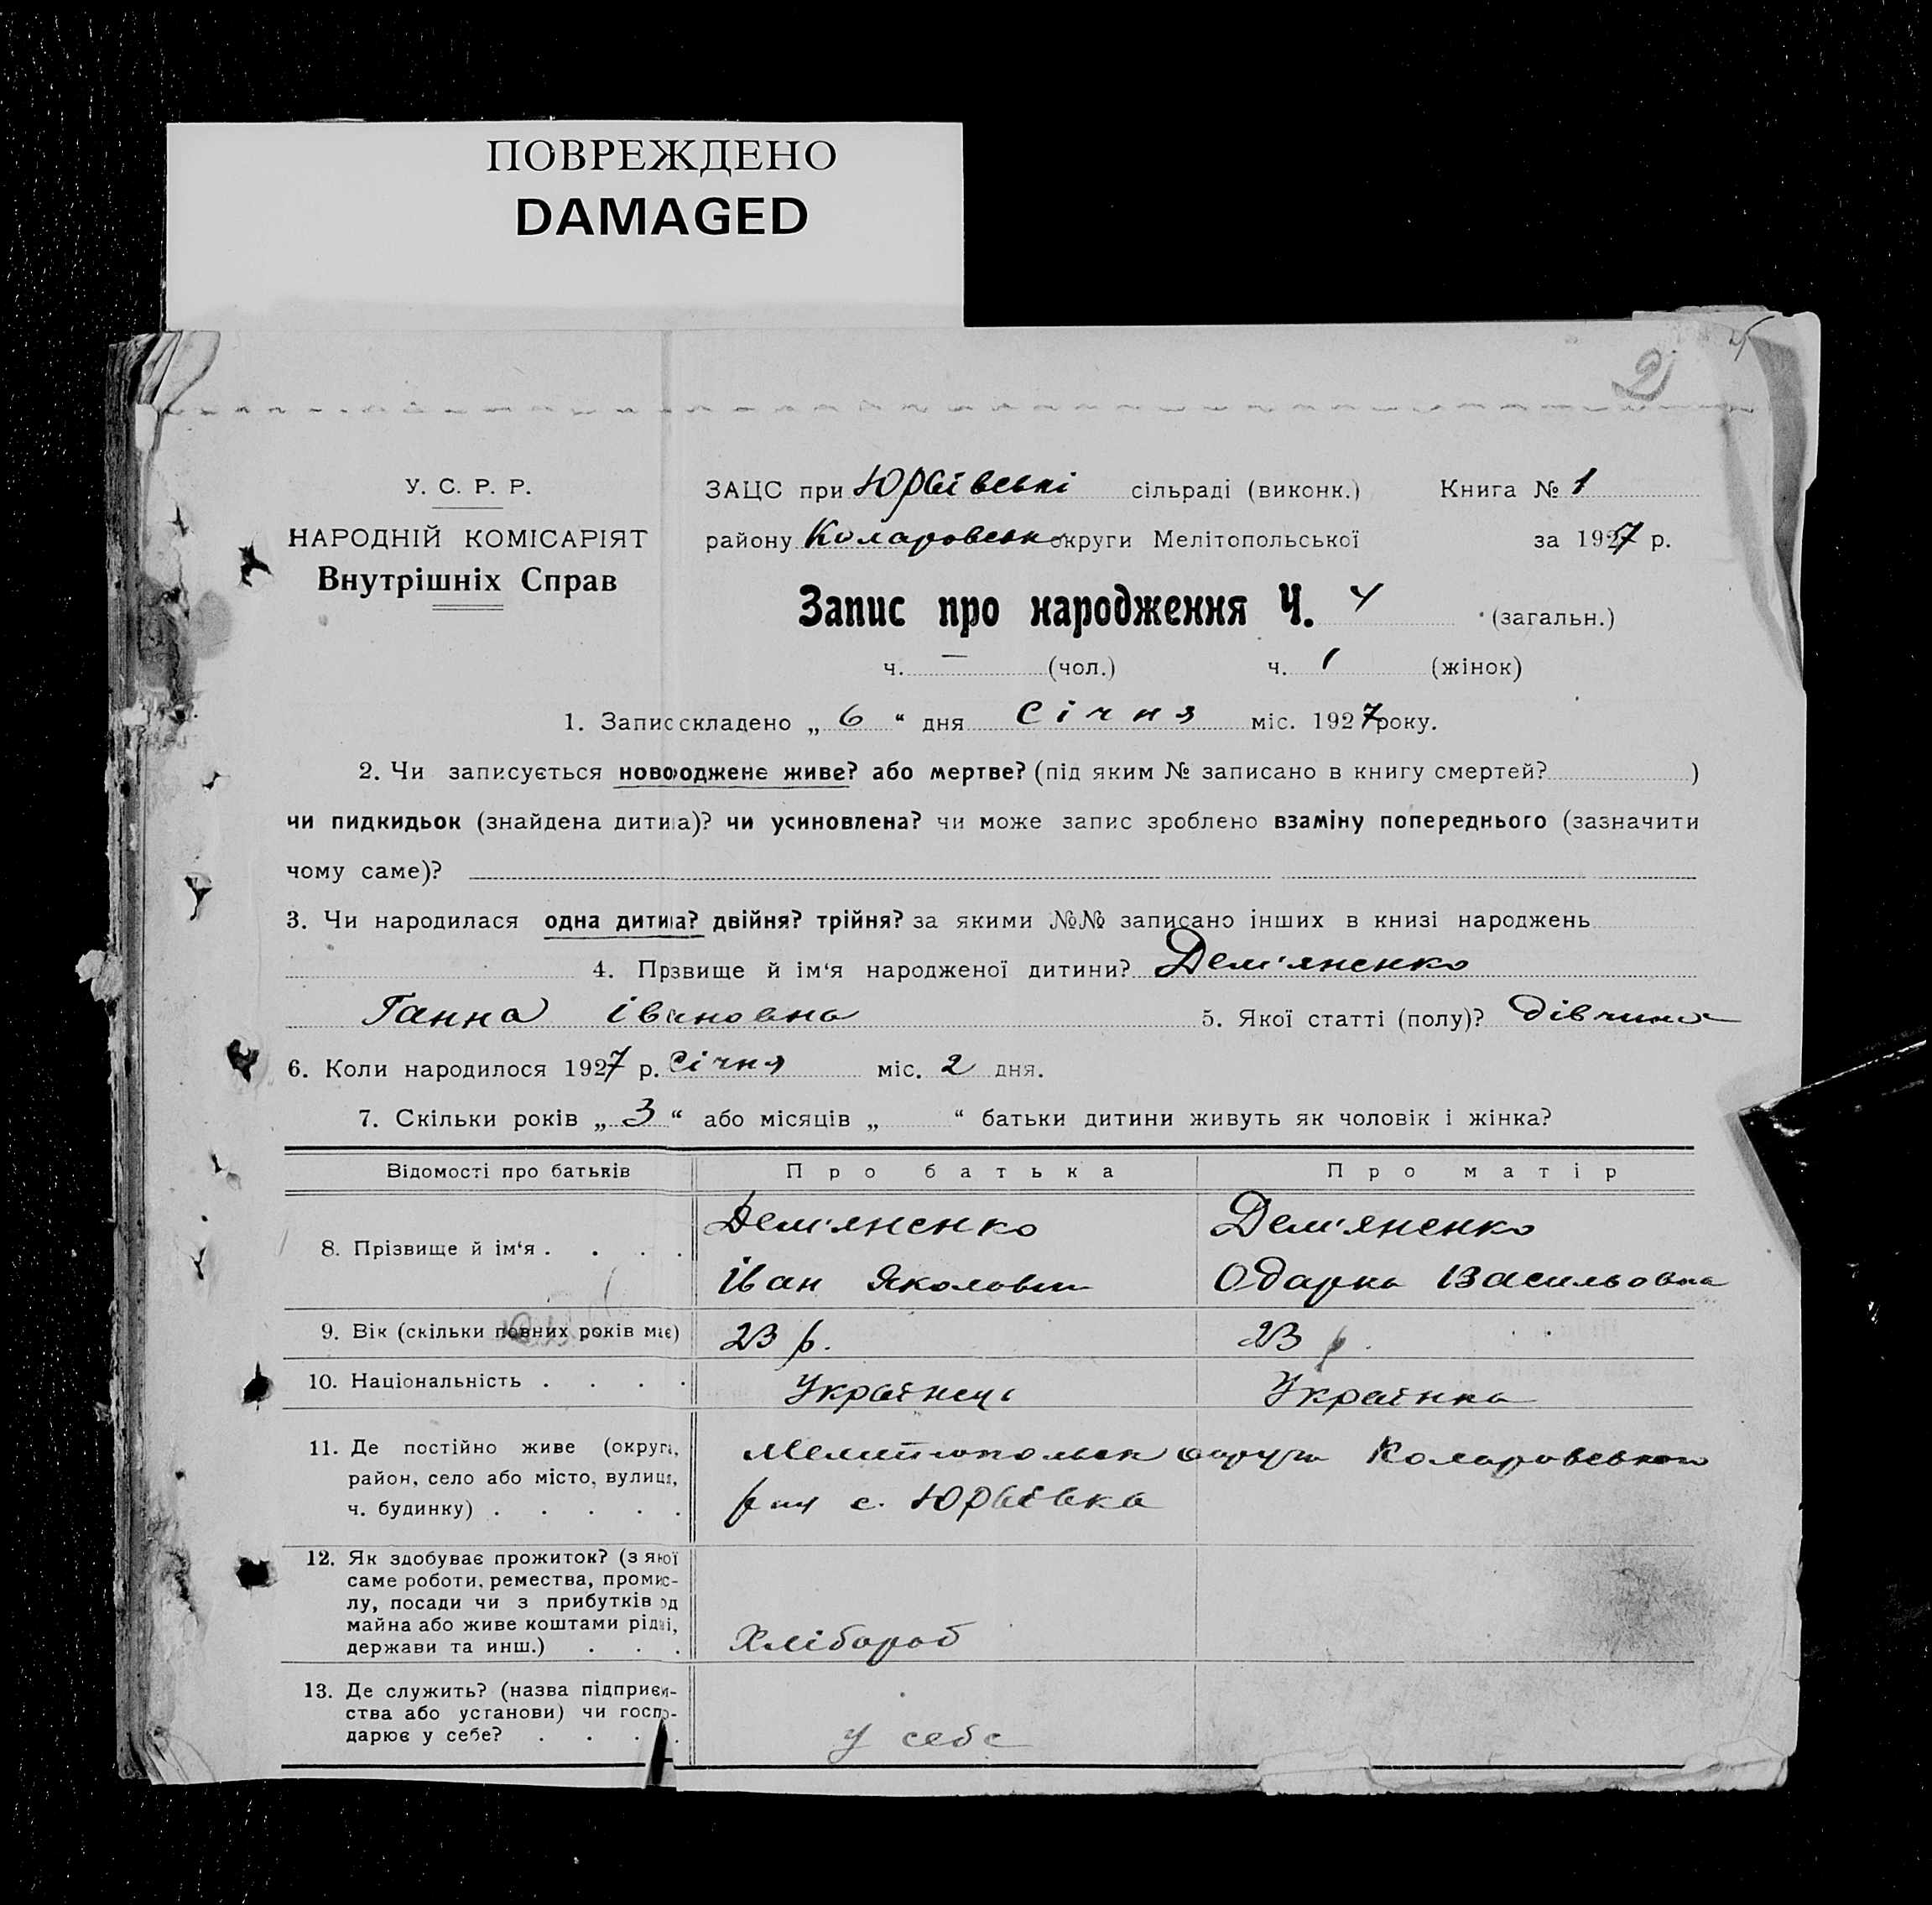 ПОВРЕЖДЕНО
DAMAGED
2
У. С. Р. Р.
НАРОДНІЙ КОМІСАРІЯТ
Внутрішніх Справ
ЗАЦС при Юр'ївські сільраді (виконк.) Книга № 1
району Коларовськ округи Мелітопольської за 1927 р.
Запис про народження Ч. 4 (загальн.)
ч. — (чол.) ч. 1 (жінок)
1. Запис складено „ 6 “ дня Січня міс. 1927 року.
2. Чи записується новороджене живе? або мертве? (під яким № записано в книгу смертей? )
чи пидкидьок (знайдена дитина)? чи усиновлена? чи може запис зроблено взаміну попереднього (зазначити
чому саме)?
3. Чи народилася одна дитина? двійня? трійня? за якими №№ записано інших в книзі народжень
4. Прзвище й ім‘я народженої дитини? Дем'яненко
Ганна Івановна 5. Якої статті (полу)? дівчина
6. Коли народилося 1927 р. Січня міс. 2 дня.
7. Скільки років „ 3 “ або місяців „ “ батьки дитини живуть як чоловік і жінка?
Відомості про батьків Про батька Про матір
8. Прізвище й ім‘я . . . . Дем'яненко Дем'яненко
Іван Якович Одарка Васильовна
9. Вік (скільки повних років має) 23 р. 23 р.
10. Національність . . . . Українець Українка
11. Де постійно живе (округа, район, село або місто, вулиця, ч. будинку) . . . . .
Мелитопольск округи Коларовського
р-ну с. Юр'ївка
12. Як здобуває прожиток? (з якої
саме роботи, ремества, промис-
лу, посади чи з прибутків од
майна або живе коштами рідні,
держави та инш.) . . . Хлібороб
13. Де служить? (назва підприєм-
ства або установи) чи госпо-
дарює у себе? . . . . у себе